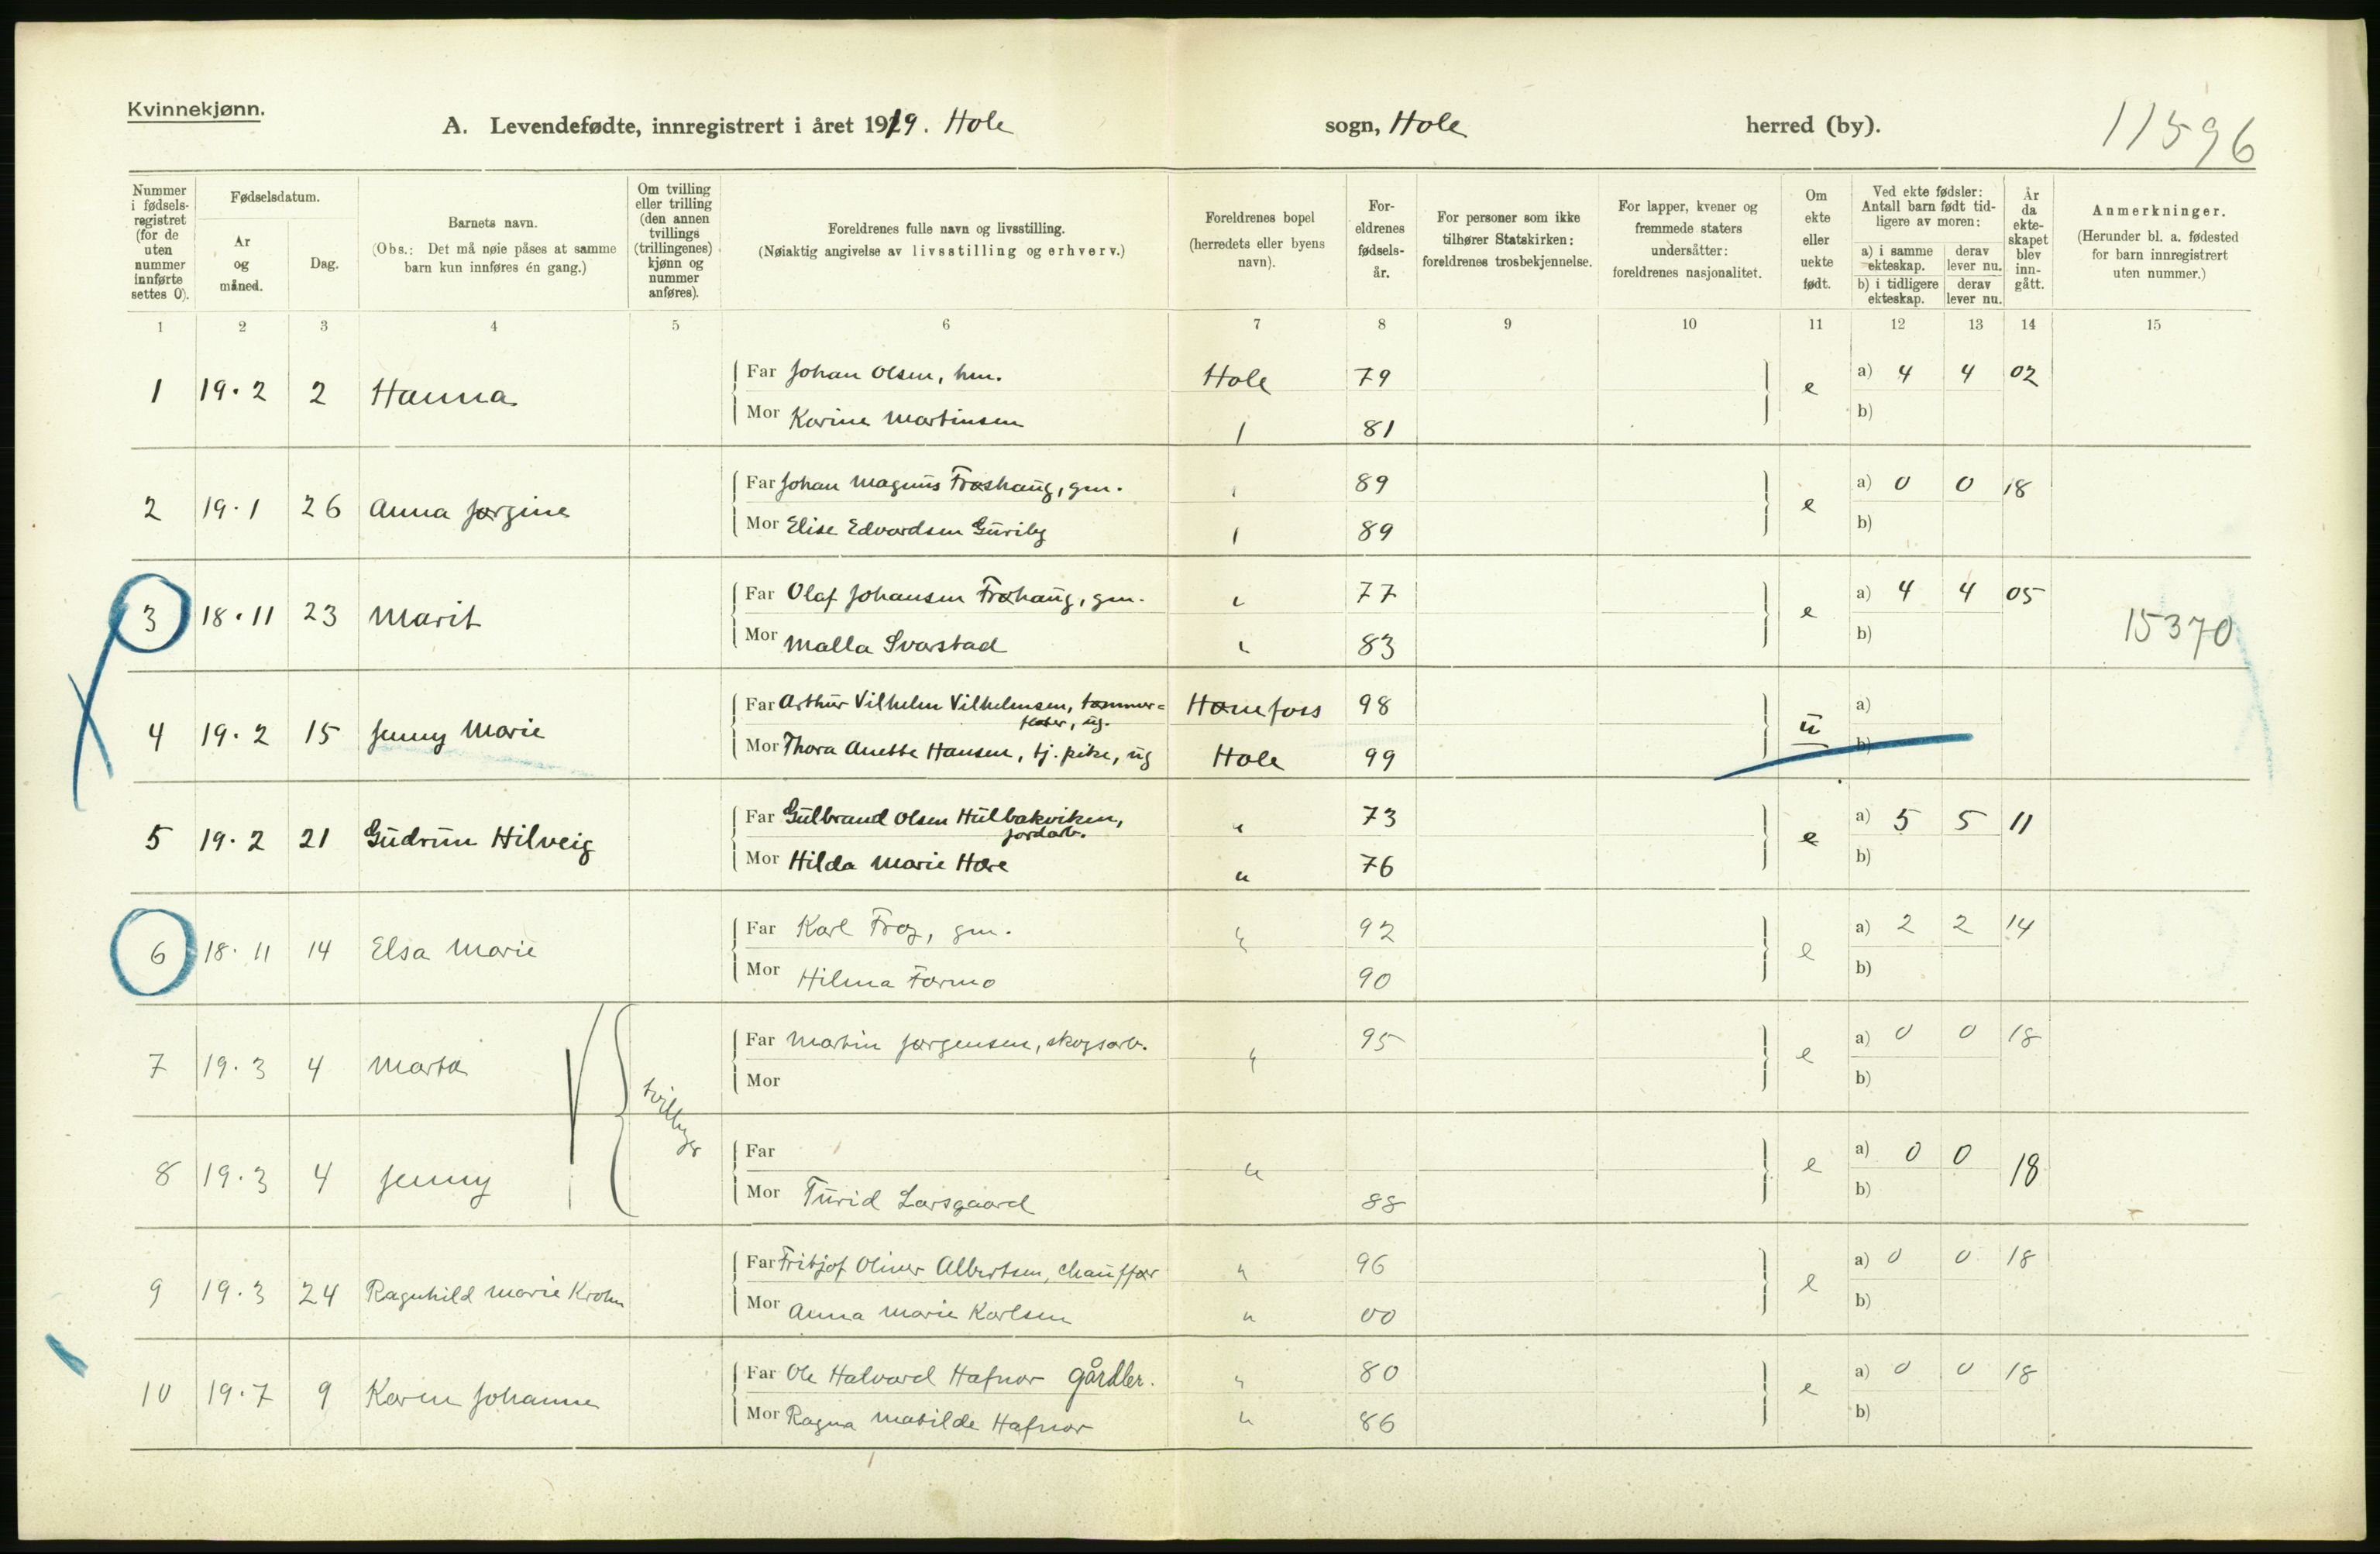 Kvinnekjønn.
A. Levendefødte, innregistrert i året 1919. Hole sogn, Hole herred (by).
11596
Nummer i fødsels-registret (for de uten nummer innførte settes 0).
Fødselsdatum.
År og måned.
Dag.
Barnets navn.
(Obs.: Det må nøie påses at samme barn kun innføres én gang.)
Om tvilling eller trilling (den annen tvillings (trillingenes) kjønn og nummer anføres).
Foreldrenes fulle navn og livsstilling.
(Nøiaktig angivelse av livsstilling og erhverv.)
Foreldrenes bopel (herredets eller byens navn).
For-eldrenes fødsels-år.
For personer som ikke tilhører Statskirken: foreldrenes trosbekjennelse.
For lapper, kvener og fremmede staters undersåtter: foreldrenes nasjonalitet.
Om ekte eller uekte født.
Ved ekte fødsler: Antall barn født tid-ligere av moren:
a) i samme ekteskap. derav lever nu.
b) i tidligere ekteskap. derav lever nu.
År da ekte-skapet blev inn-gått.
Anmerkninger.
(Herunder bl. a. fødested for barn innregistrert uten nummer.)
1 2 3 4 5 6 7 8 9 10 11 12 13 14 15
1 19.2 2 Hanna Far Johan Olsen, hm. Hole 79 e a) 4 4 02
Mor Karine Martinsen 81 b)
2 19.1 26 Anna Jørgine Far Johan Magnus Frøshaug, gm. 89 e a) 0 0 18
Mor Elise Edvardsen Güriby 89 b)
3 18.11 23 Marit Far Olaf Johansen Frøhaug, gm. " 77 e a) 4 4 05 15370
Mor Malla Svarstad " 83 b)
4 19.2 15 Jenny Marie Far Arthur Vilhelm Vilhelmsen, tømmer= Hønefoss 98 u a)
fløter, ug.
Mor Thora Anette Hansen, tj. pike, ug Hole 99 b)
5 19.2 21 Gudrun Hilveig Far Gulbrand Olsen Hulbakviken, " 73 e a) 5 5 11
jordarb.
Mor Hilda Marie Hære " 76 b)
6 18.11 14 Elsa Marie Far Karl Frøy, gm. " 92 e a) 2 2 14
Mor Hilma Formo 90 b)
7 19.3 4 Marta tvillinger Far Martin Jørgensen, skogsarb. " 95 e a) 0 0 18
Mor b)
8 19.3 4 Jenny Far " e a) 0 0 18
Mor Turid Larsgaard 88 b)
9 19.3 24 Ragnhild Marie Krohn Far Fritjof Oliver Albertsen, chauffør " 96 e a) 0 0 18
Mor Anna Marie Karlsen " 00 b)
10 19.7 9 Karen Johanne Far Ole Halvard Hafnor gårdbr. " 80 e a) 0 0 18
Mor Ragna Matilde Hafnor " 86 b)